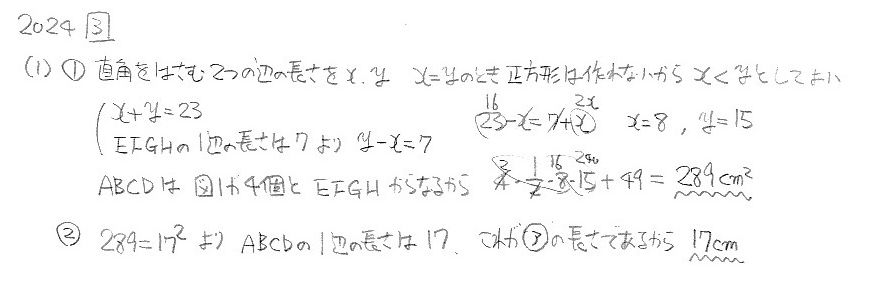 2024 3
(1) ① 直角をはさむ2つの辺の長さをx, y x=yのとき正方形は作れないから x<yとしてよい
x+y=23 23-x=7+x 16 2x x=8, y=15
EFGHの1辺の長さは7より y-x=7
ABCDは図1が4個とEFGHからなるから 4・1/2・8・15+49=289cm² 2 16 240
② 289=17²より ABCDの1辺の長さは17. これが㋐の長さであるから 17cm